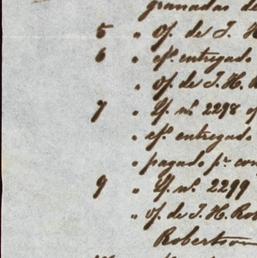 granadas de
5 " Of. de J. H
6 " ef. entregado
" of. de J. H. R
7 " Lf. nº 2298 of
" ef. entregado
" pagado pr. con
9 " Lf. nº. 2299
" of. de J. H. Rob
Robertson